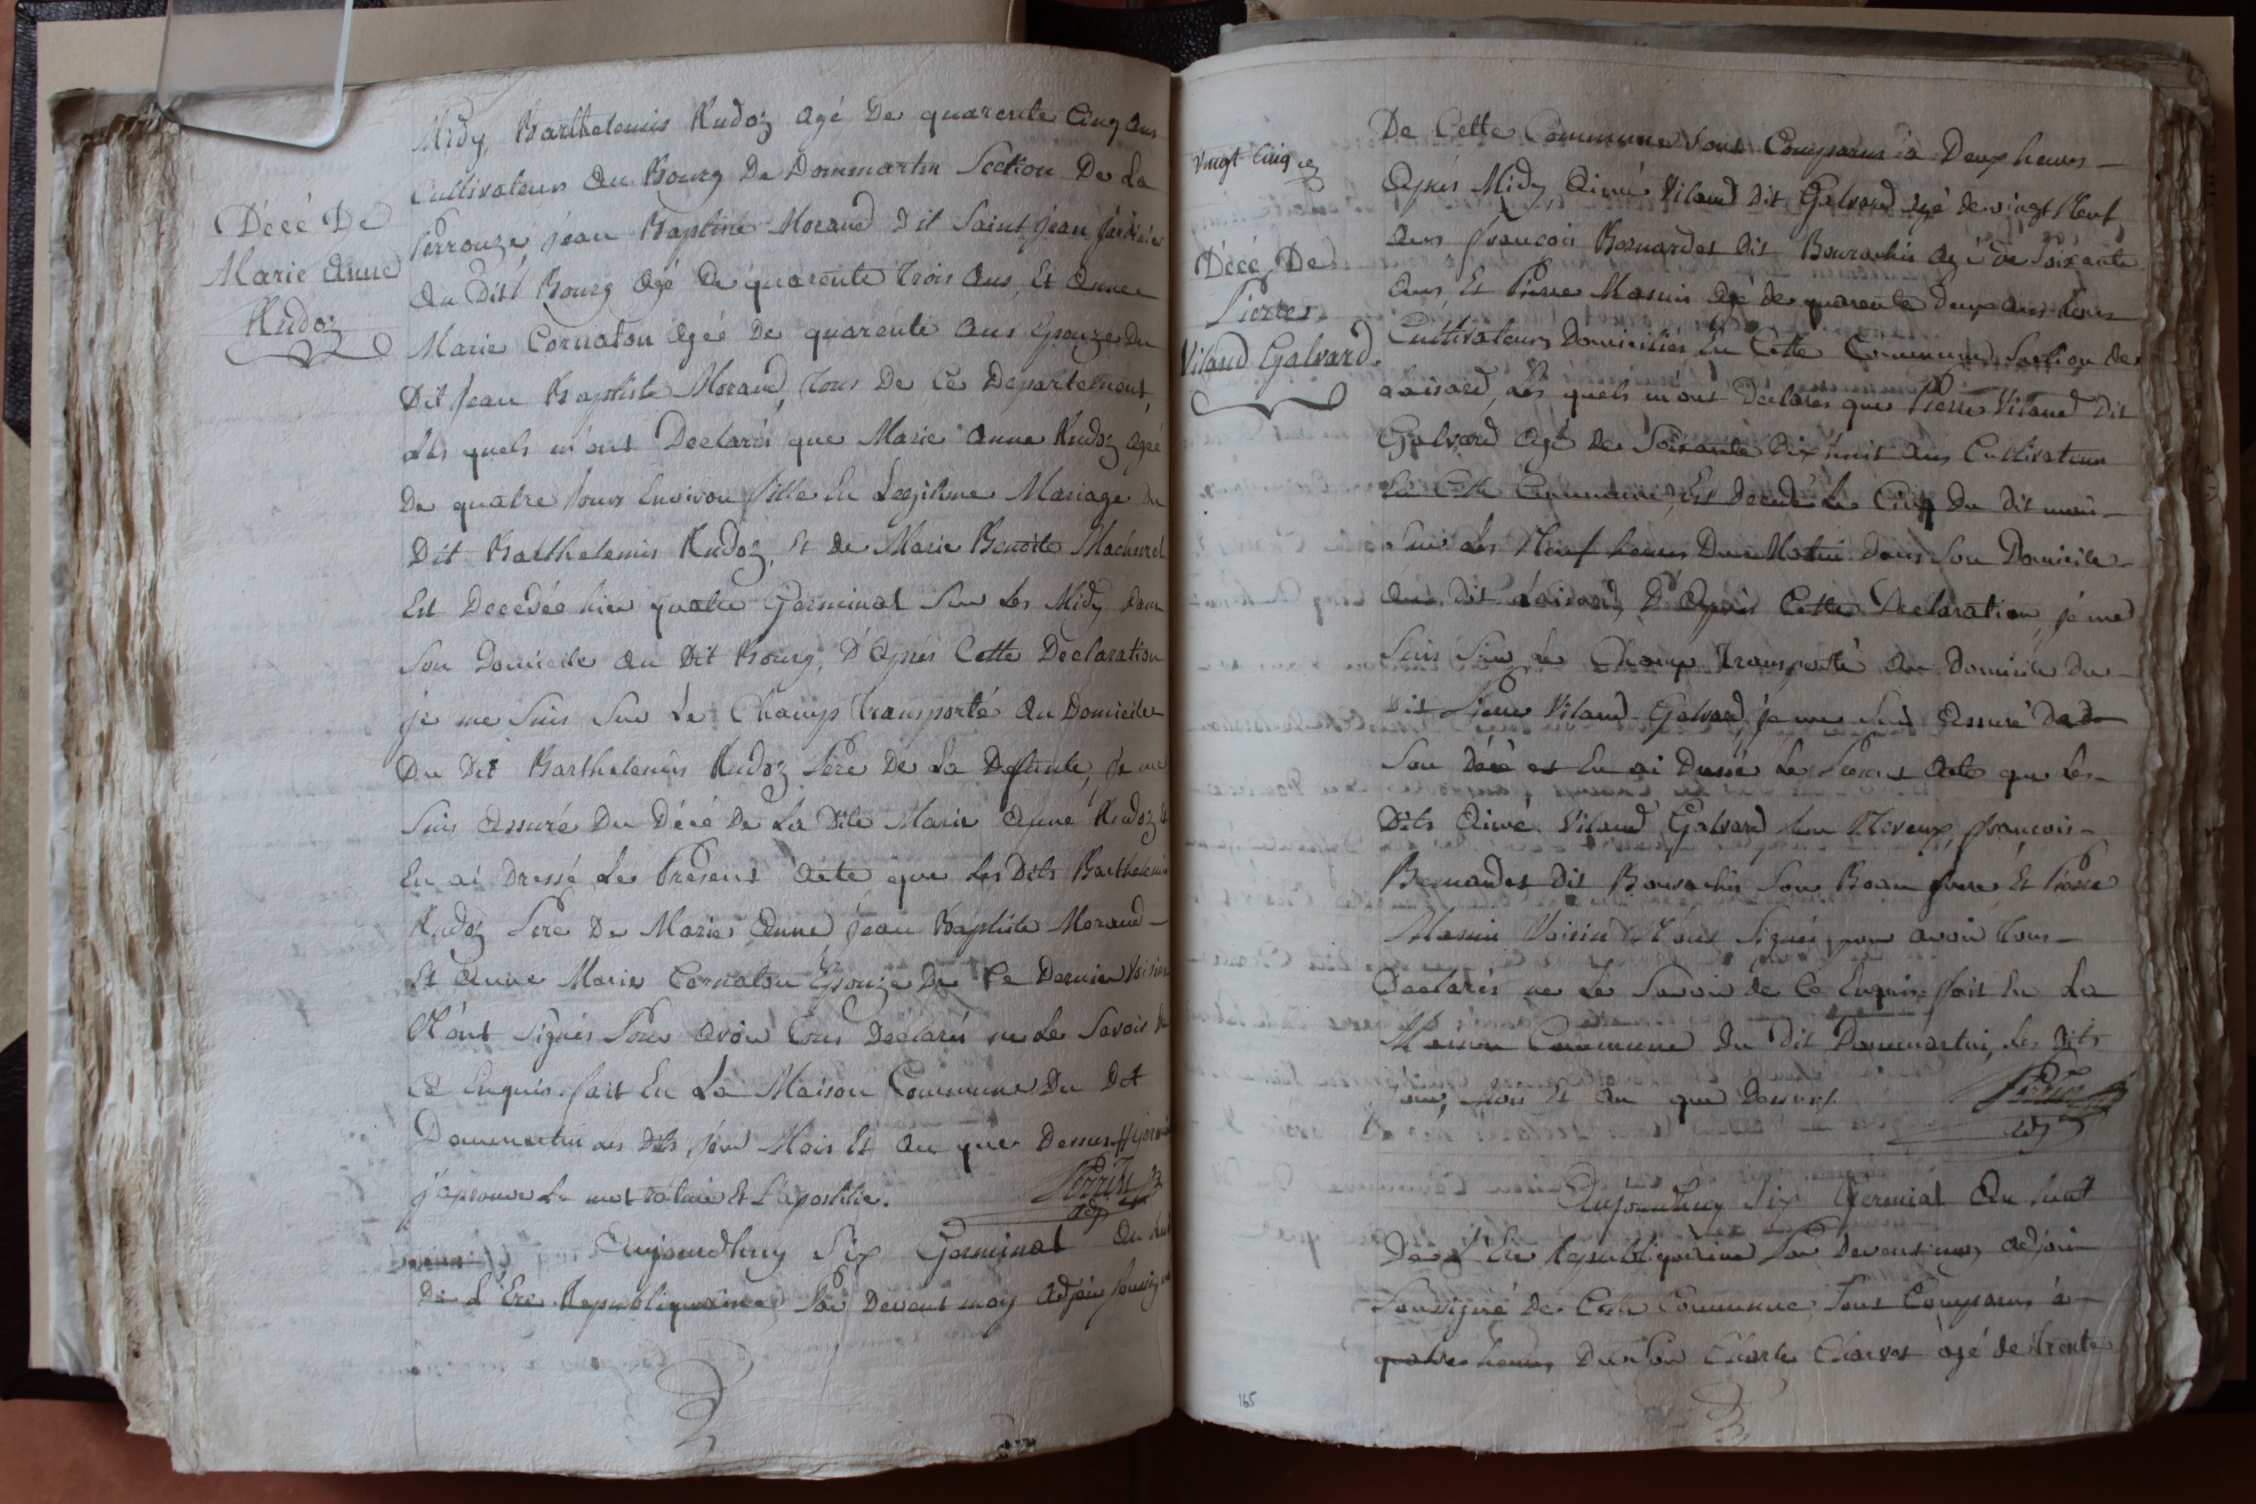 Décé De
Marie Anne
Rudoz
Midy, Barthelemis Rudoz agé De quarente Cinq ans
Cultivateur au Bourg De Dommartin Section De La
Perrouze, jean Baptiste Morand dit Saint jean
Au Dit Bourg agé De quarente trois ans, Et Anne
Marie Cornaton agée De quarente ans Epouze Du
Dit jean Baptiste Morand, tous De Ce Departement,
Les quels m'ont Declarés que Marie Anne Rudoz agée
De quatre jours Environ fille En Legitime Mariage du
Dit Barthelemis Rudoz, et De Marie Benoite Machurel
Est Decedée hier quatre Germinal Sur Les Midy dans
Son Domicile au Dit Bourg, D'Aprés Cette Declaration
je me Suis Sur Le Champs transporté au Domicile
Du Dit Barthelemis Rudoz Pere De La Deffunte, je me
Suis assuré Du Décé De La Dite Marie Anne Rudoz &
En ai Dressé Le Present acte que Les Dits Barthelemis
Rudoz Pere De Marie Anne jean Baptiste Morand
Et Anne Marie Cornaton Epouze De Ce Dernier Voisins
N'ont Signés Pour avoir tous Declarés ne Le Savoir De
Ce Enquis. fait En La Maison Commune Du Dit
Dommartin Les Dits jour Mois Et an que Dessus
j'aprouve Le mot Et L'apostille.
Aujourdhuy Six Germinal an huit
De L'Ere Republiquaine Par Devant moy adjoin Soussigné
Vingt Cinq
Décé De
Pierre
Viland Galvard
De Cette Commune Sont Comparus à Deux heures
Après Midy Aimé Viland Dit Galvard agé de vingt Neuf
ans françois Bernardet Dit Bourachis agé de Soixante
ans, Et Pierre Masuis agé de quarente Deux ans tous
Cultivateurs Domiciliés En Cette Commune Section de
Loisard, Les quels m'ont Déclarés que Pierre Viland Dit
Galvard agé de Soixante Dix huit ans Cultivateur
En Cette Commune, Est Decedé Le Cinq Du Dit mois
Sur Les Neuf heures Du Matin dans Son Domicile
au Dit Loisard, D'Aprés Cette Declaration, je me
Suis Sur Le Champ transporté au Domicile Du
Dit Pierre Viland Galvard, je me Suis assuré De
Son Décé et En ai Dressé Le Present acte que Les
Dits Aimé Viland Galvard Son Neveux, françois
Bernardet Dit Bourachis Son Beau frere Et Pierre
Masuis Voisin N'ont Signés pour avoir tous
Declarés ne Le Savoir de Ce Enquis. fait En La
Maison Commune Du Dit Dommartin, Les Dits
jour, Mois Et an que Dessus.
Aujourdhuy Six Germial an huit
De L'Ere Republiquaine Par Devant moy adjoin
Soussigné De Cette Commune Sont Comparus à
quatre heures Du Soir Charle Charvet agé de trente
165